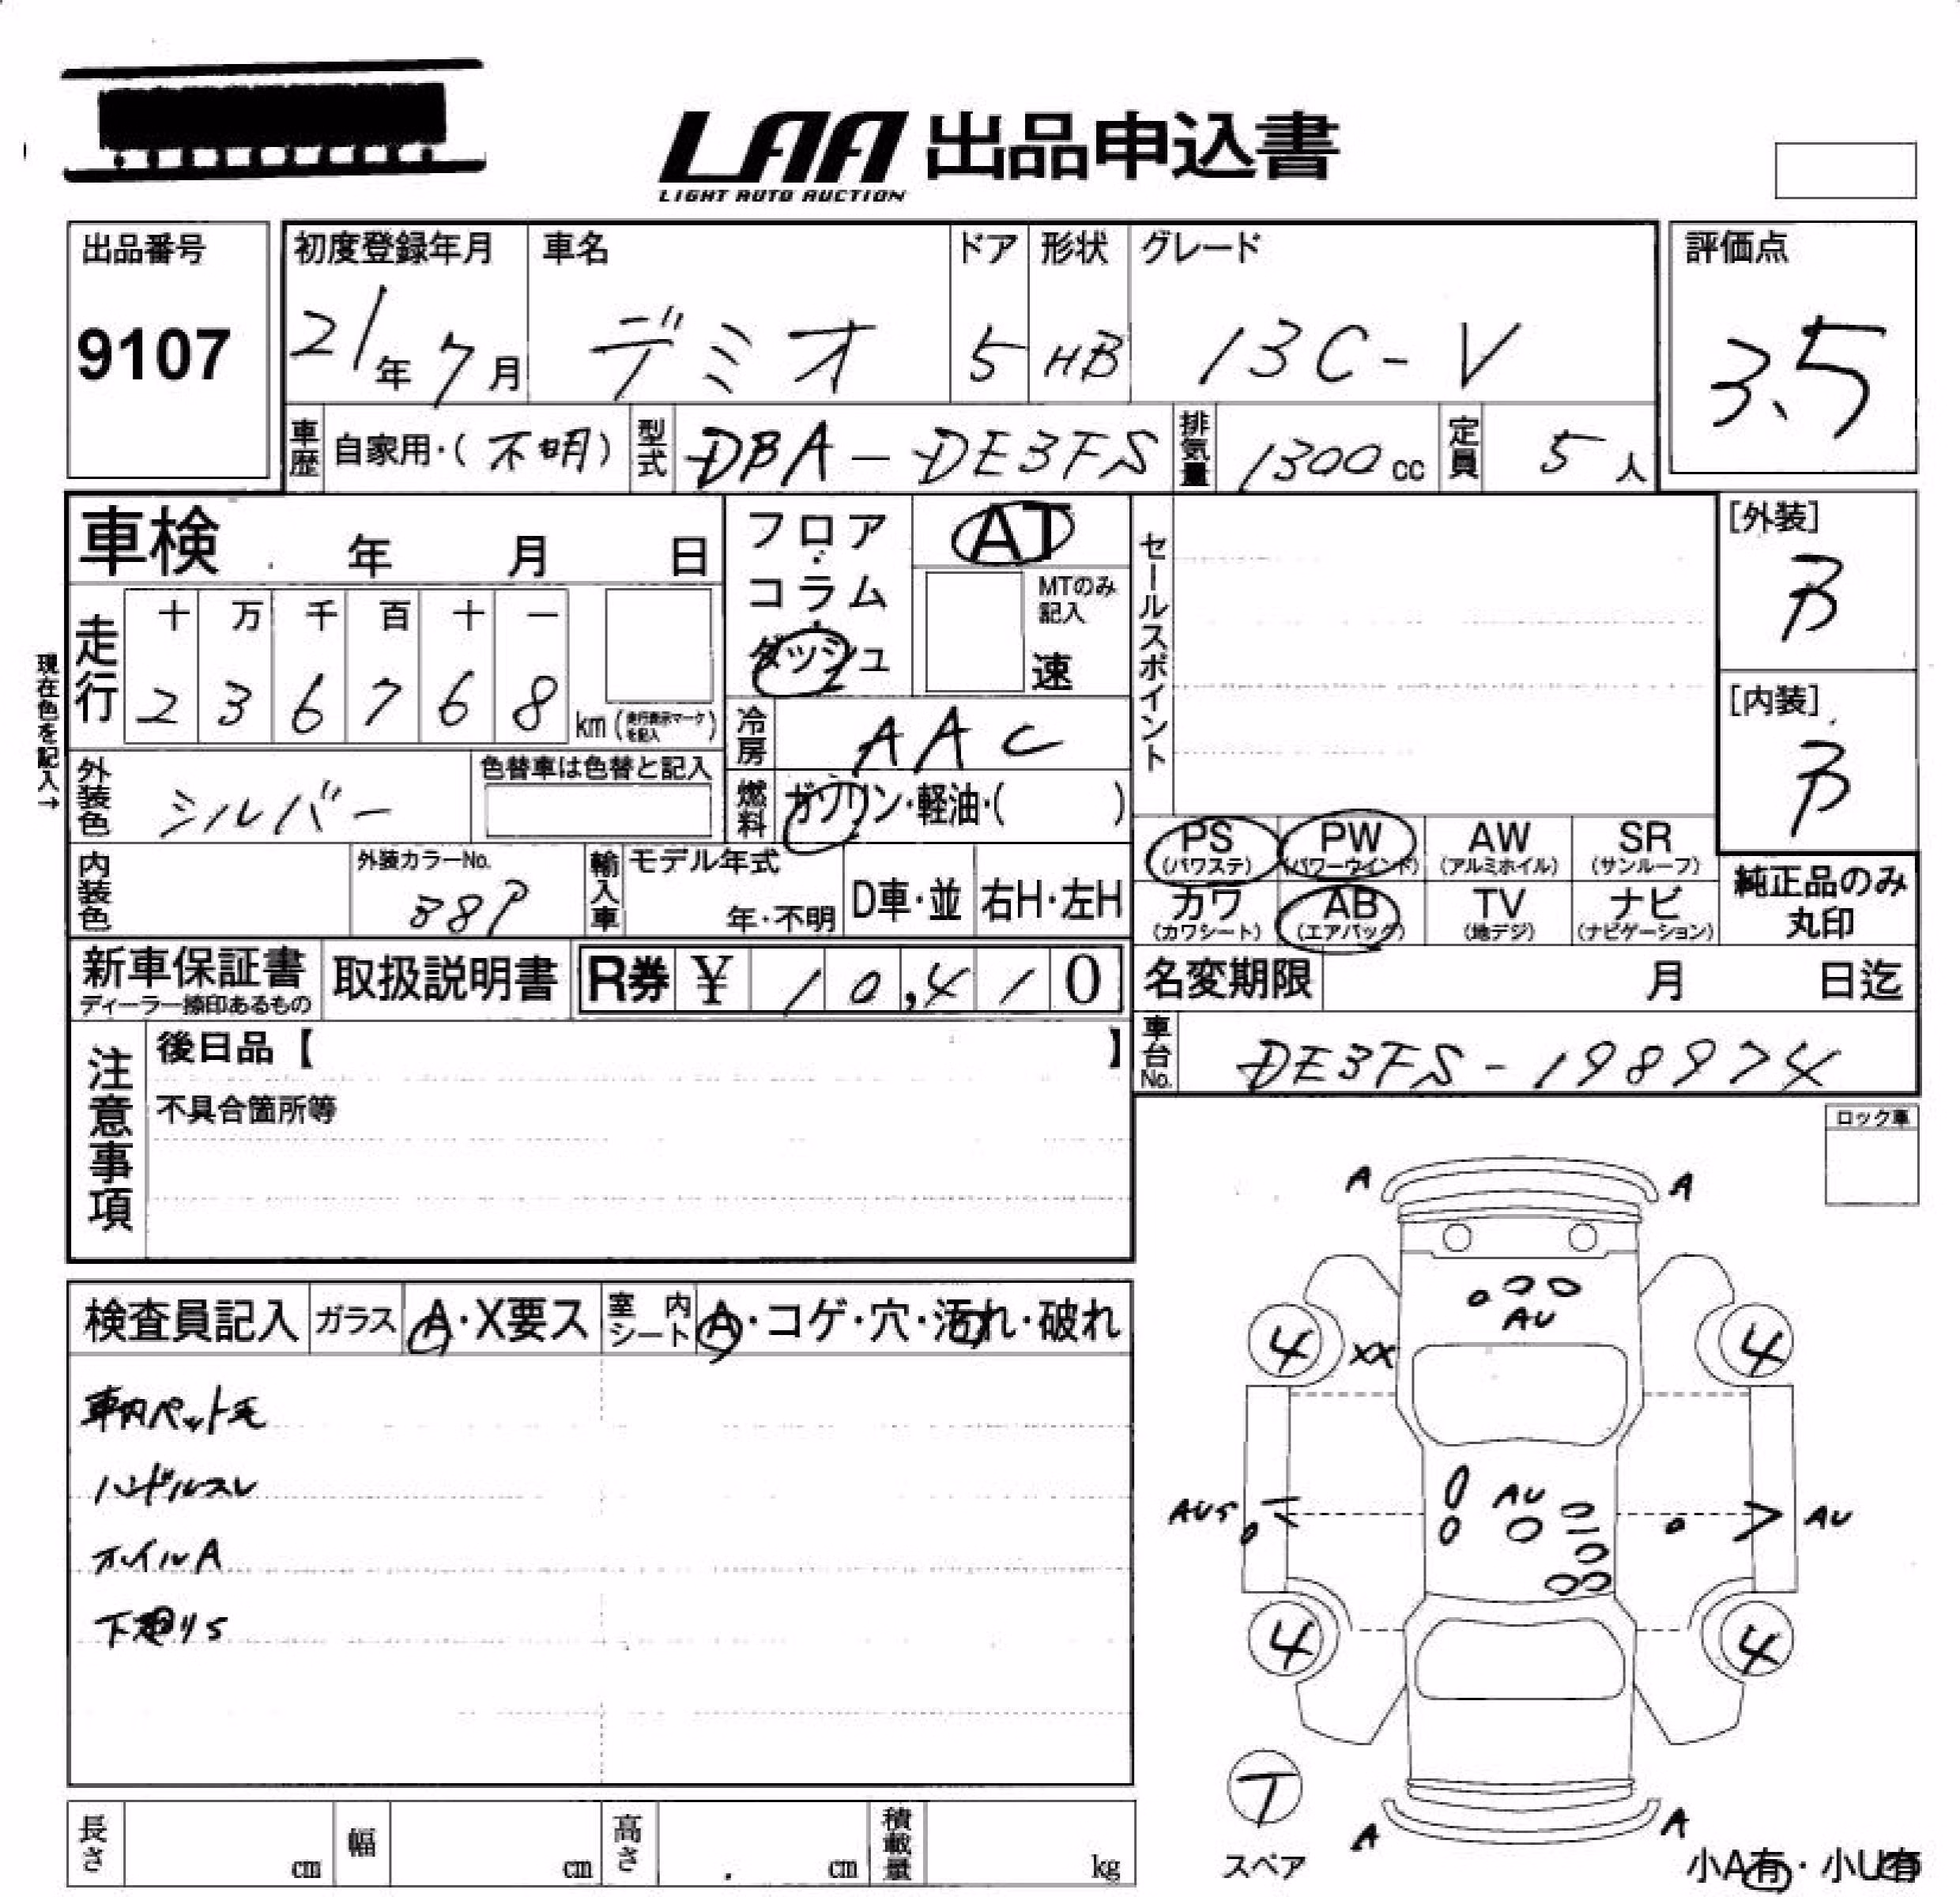 LAA 出品申込書
LIGHT AUTO AUCTION
出品番号 初度登録年月 車名 ドア 形状 グレード 評価点
9107 21年 7月 デミオ 5 HB 13C-V 3.5
車歴 自家用・(不明) 型式 DBA-DE3FS 排気量 1300cc 定員 5人
車検 年 月 日 フロア・コラム・ダッシュ AT セールスポイント [外装]
B
MTのみ記入
速
現在色を記入→
走行 十 万 千 百 十 一
2 3 6 7 6 8 km (走行表示マークを記入)
[内装]
B
冷房 AAC
外装色 シルバー 色替車は色替と記入 燃料 ガソリン・軽油・( )
PS (パワステ) PW (パワーウインド) AW (アルミホイル) SR (サンルーフ)
純正品のみ丸印
内装色 外装カラーNo. 38P 輸入車 モデル年式 年・不明 D車・並 右H・左H
カワ (カワシート) AB (エアバック) TV (地デジ) ナビ (ナビゲーション)
新車保証書 ディーラー捺印あるもの 取扱説明書 R券 ¥ 10,410 名変期限 月 日迄
注意事項 後日品【 】 車台No. DE3FS-198974
不具合箇所等
ロック車
A A
検査員記入 ガラス A・X要ス 室内シート A・コゲ・穴・汚れ・破れ
AU
4 XX 4
車内ペット毛
ハンドルスレ
AUS AU AU
オイルA
下廻りS
4 4
T
スペア
A A
長さ cm 幅 cm 高さ cm 積載量 kg
小A有・小U有